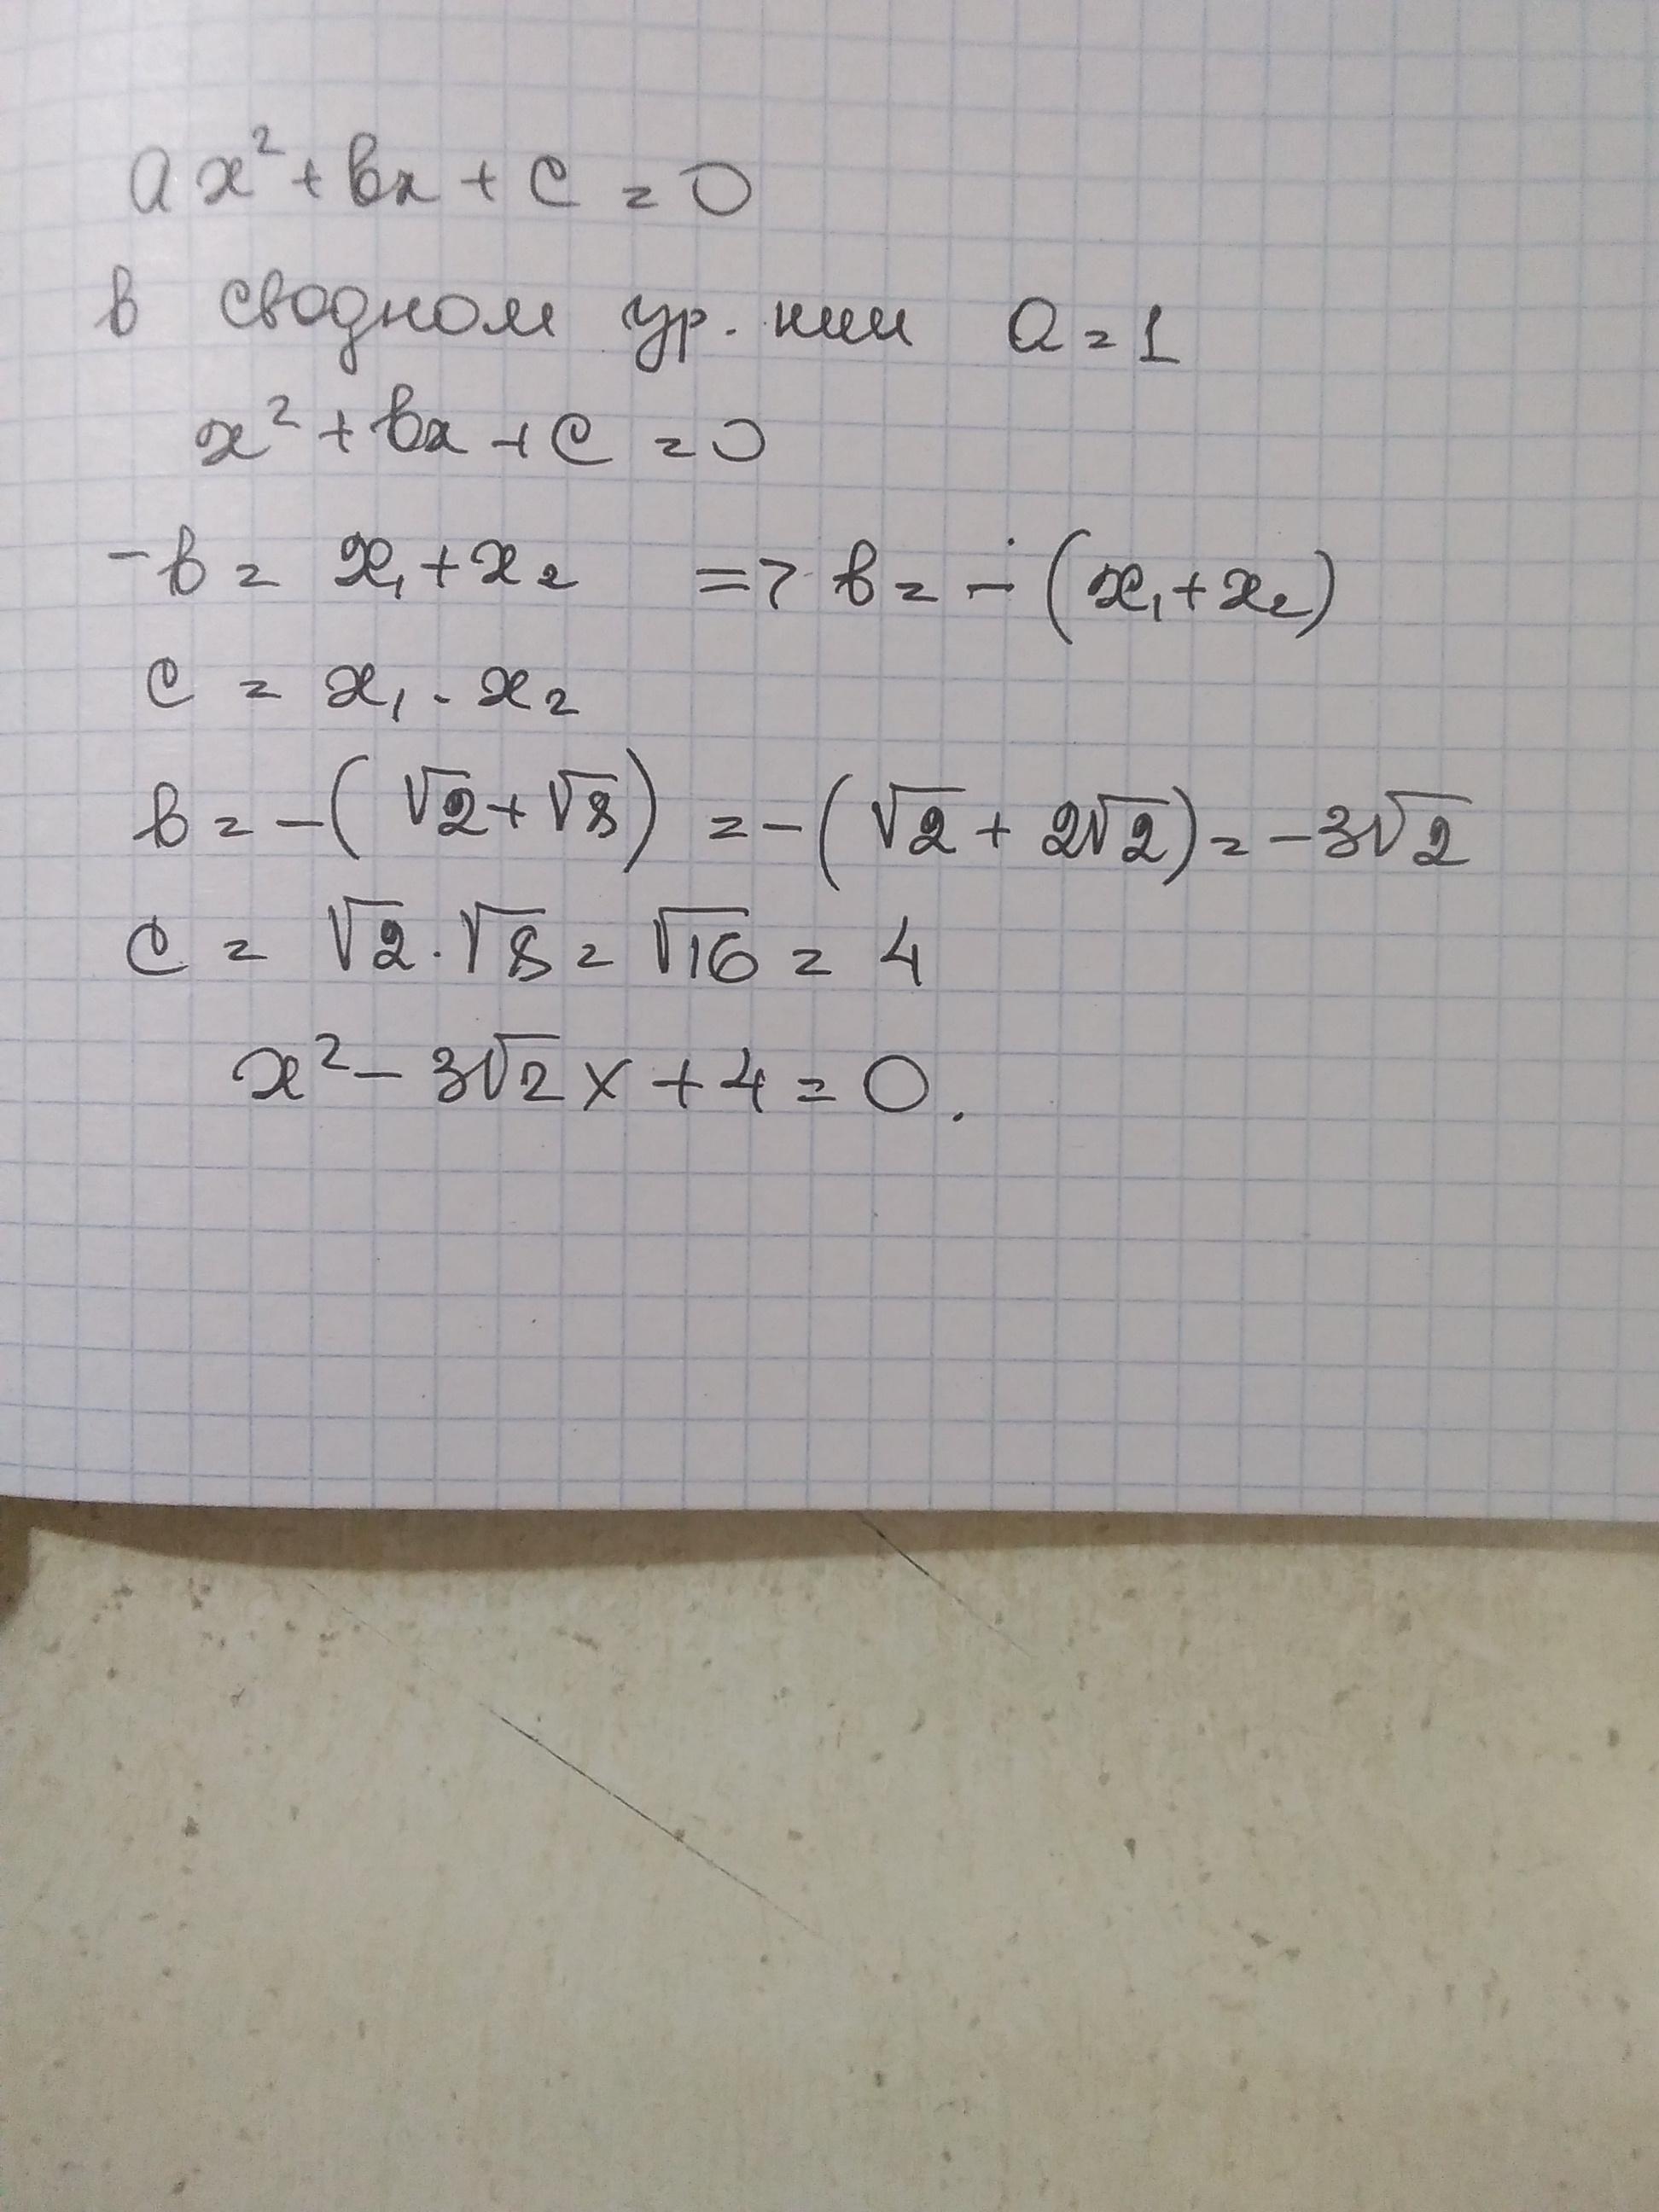 ax² + вx + c = 0
в сводном ур.нии a = 1
x² + вx + c = 0
-в = x₁ + x₂ => в = -(x₁ + x₂)
c = x₁ · x₂
в = -(√2 + √8) = -(√2 + 2√2) = -3√2
c = √2 · √8 = √16 = 4
x² - 3√2x + 4 = 0.